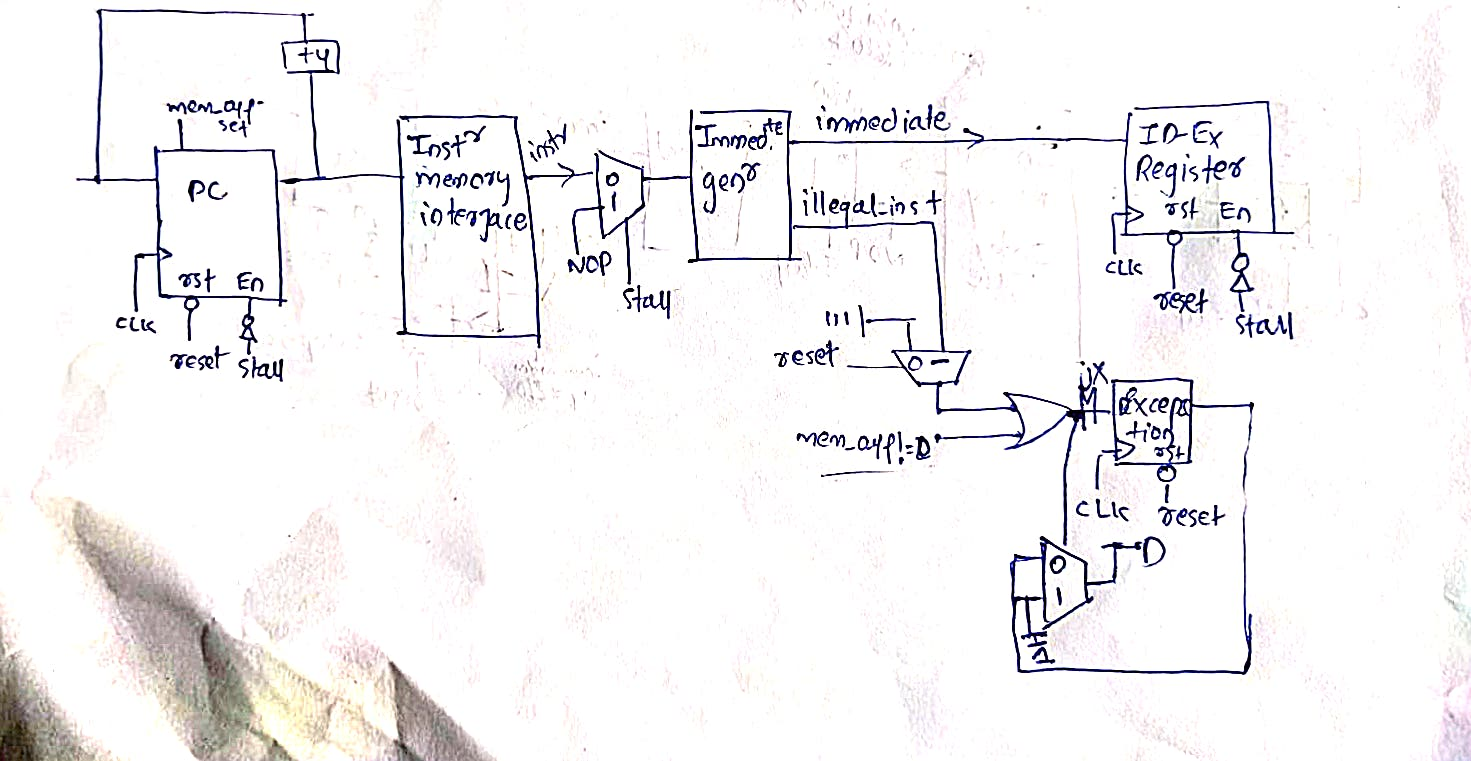 +4
mem_off-
set
PC
rst En
CLK
reset
Stall
Instr
memory
interface
instr
0
1
NOP
Stall
Immed.te
genr
immediate
illegal-inst
ID-Ex
Register
rst En
CLK
reset
Stall
reset
0
mem_off!=0
Excep
tion
rst
CLK
reset
0
1
D